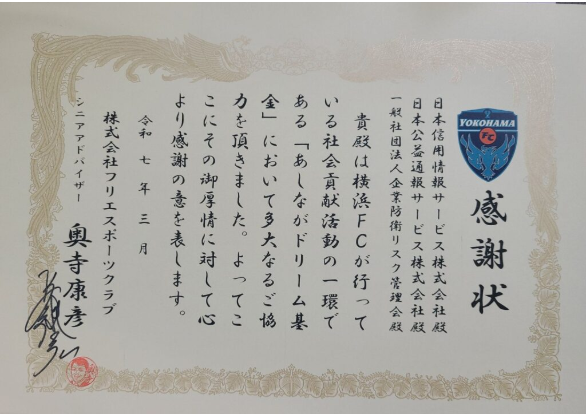 YOKOHAMA
FC
感謝状
日本信用情報サービス株式会社 殿
日本公益通報サービス株式会社 殿
一般社団法人企業防衛リスク管理会殿
貴殿は横浜FCが行って
いる社会貢献活動の一環で
ある「あしながドリーム基
金」において多大なるご協
力を頂きました。よってこ
こにその御厚情に対して心
より感謝の意を表します。
令和 七 年 三 月
株式会社フリエスポーツクラブ
シニアアドバイザー 奥寺康彦